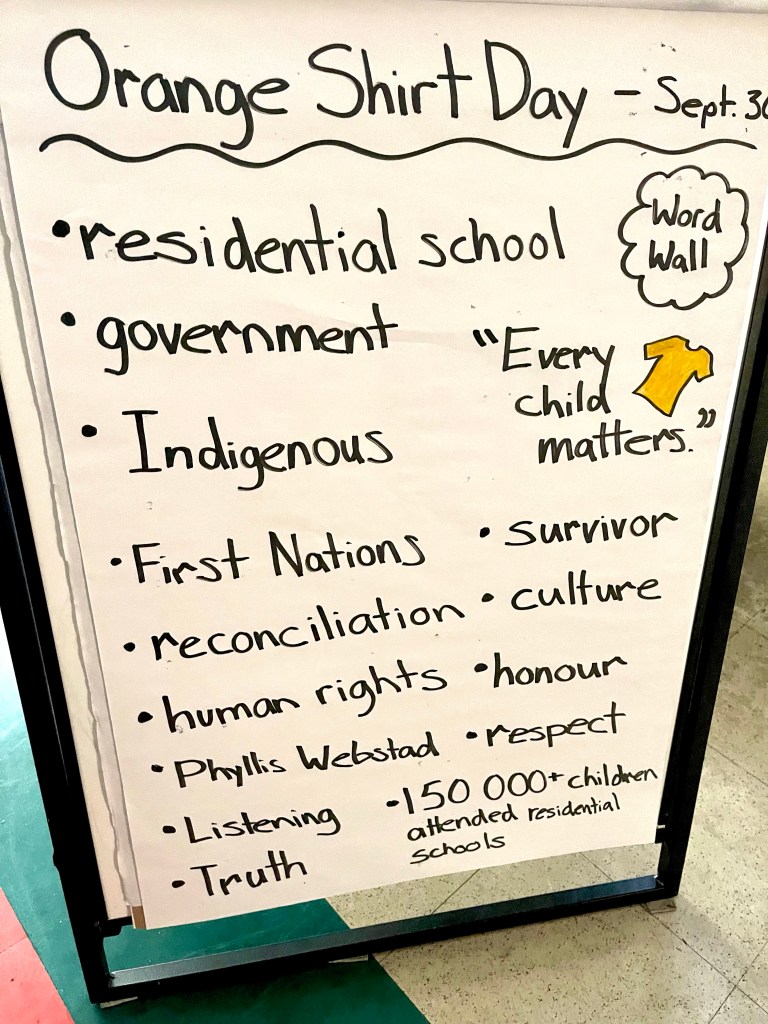 Orange Shirt Day - Sept. 30
Word
Wall
• residential school
• government
"Every
child
matters."
• Indigenous
• First Nations
• reconciliation
• human rights
• Phyllis Webstad
• Listening
• Truth
• survivor
• culture
• honour
• respect
• 150 000+ children
attended residential
schools